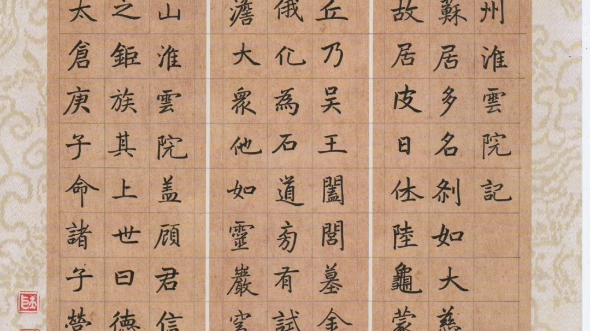 州淮雲院記
蘇居多名刹如大慈
故居皮日休陸龜蒙
丘乃吴王闔閭墓金
俄化為石道旁有試
澹大衆他如靈巖雲
山淮雲院盖顾君信
之鉅族其上世曰德
太倉庚子命諸子營